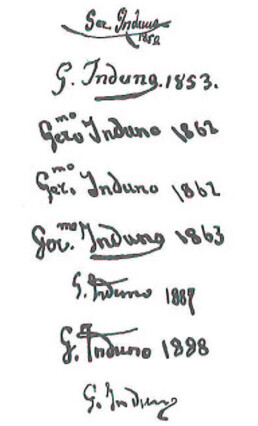 Ger. Induno 1852
G. Induno. 1853.
Gero.mo Induno 1862
Gero.mo Induno 1862
Gor.mo Induno 1863
G. Induno 1887
G. Induno 1898
G. Induno